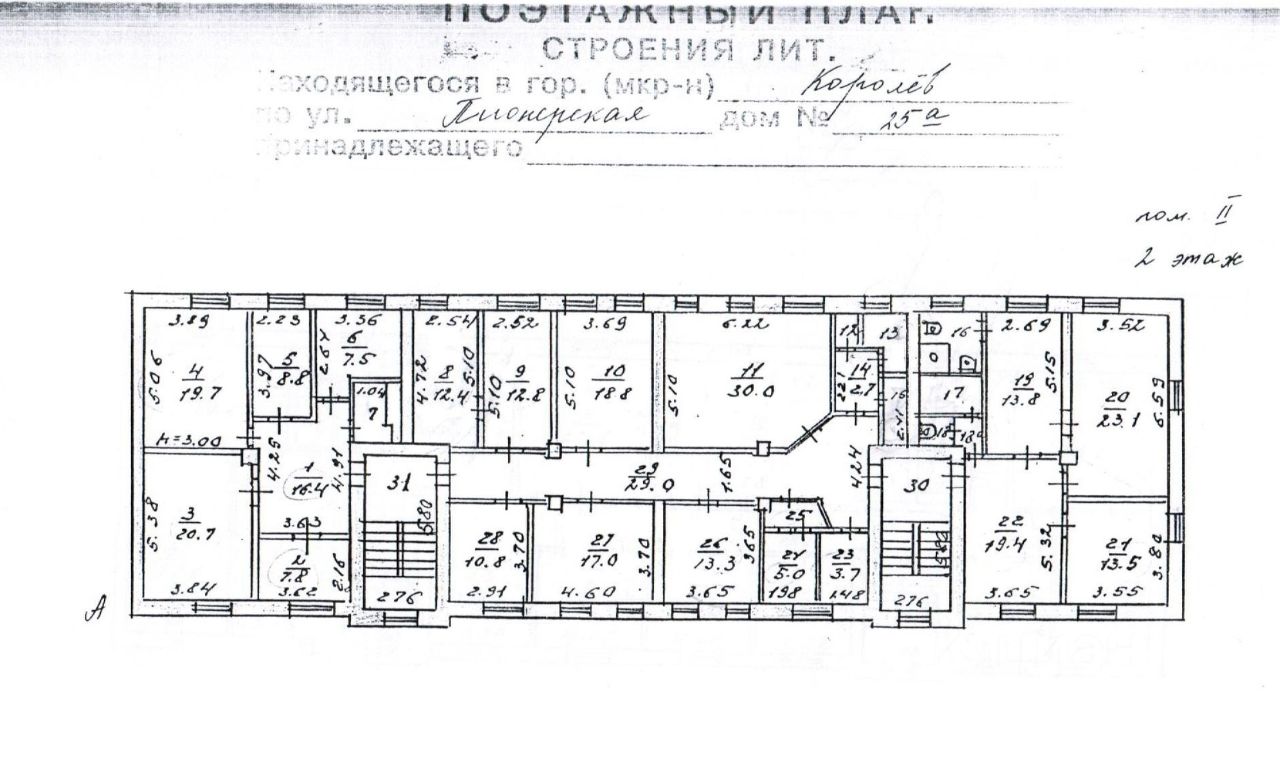 ПОЭТАЖНЫЙ ПЛАН.
СТРОЕНИЯ ЛИТ.
Находящегося в гор. (мкр-н) Королёв
по ул. Пионерская дом № 25а
принадлежащего
пом. II
2 этаж
3.89 2.23 3.36 2.54 2.52 3.69 6.22 12 13 16 2.69 3.52
5.06 4 19.7 3.97 5 8.8 2.67 6 7.5 4.72 8 12.4 5.10 5.10 9 12.8 5.10 10 18.8 5.10 11 30.0 14 2.7 19 13.8 5.15 20 23.1 6.59
1.04 7 15 2.41 17 18 18а
н=3.00 4.25 1 16.4 4.91 31 29 29.0 1.65 4.24 30
5.38 3 20.7 3.63 5.80 25 22 19.4 5.32
2 7.8 2.16 28 10.8 3.70 27 17.0 3.70 26 13.3 3.65 24 5.0 23 3.7 5.80 21 13.5 3.80
А 3.84 3.62 2.76 2.91 4.60 3.65 1.98 2.48 2.76 3.65 3.55